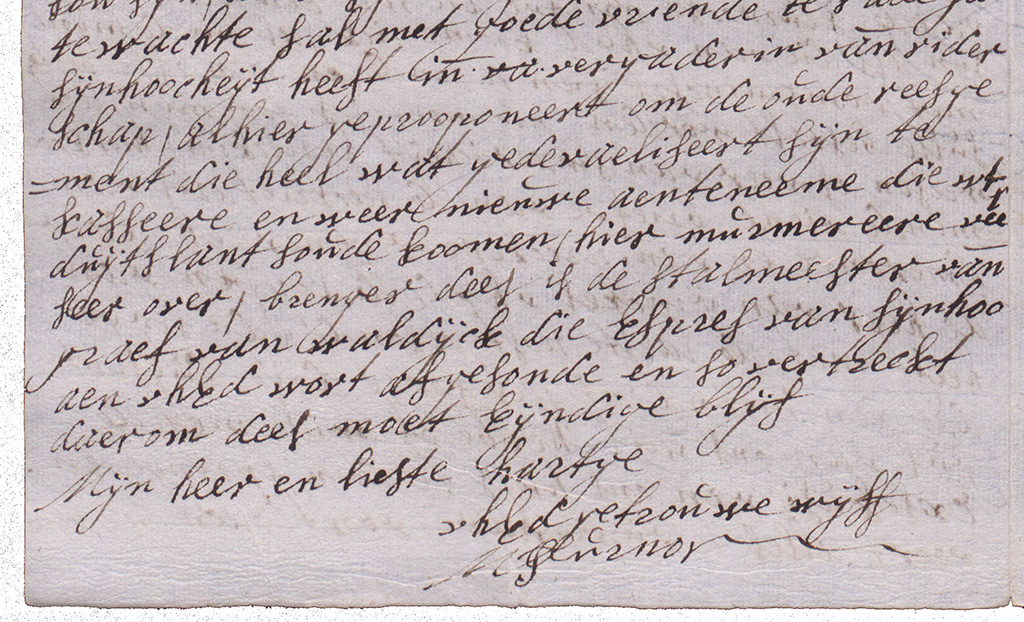 te wachte sal met goede vriende te
sijnhoocheijt heeft in va vergaderin van rider
schap / alhier geprooponeert om de oude reesge
=ment die heel wat gedevaeliseert sijn te
kasseere en weer nieuwe aenteneeme die wt
duijtslant soude koomen / hier murmereere vee
seer over / brenger dees is de stalmeester van
graef van waldijck die Expres van sijnhoo
aen vhEd wort afgesonde en so vertreckt
daerom dees moet Eijndige blijf
Mijn heer en liefste hartge
vhEd getrouwe wijff
M Turnor